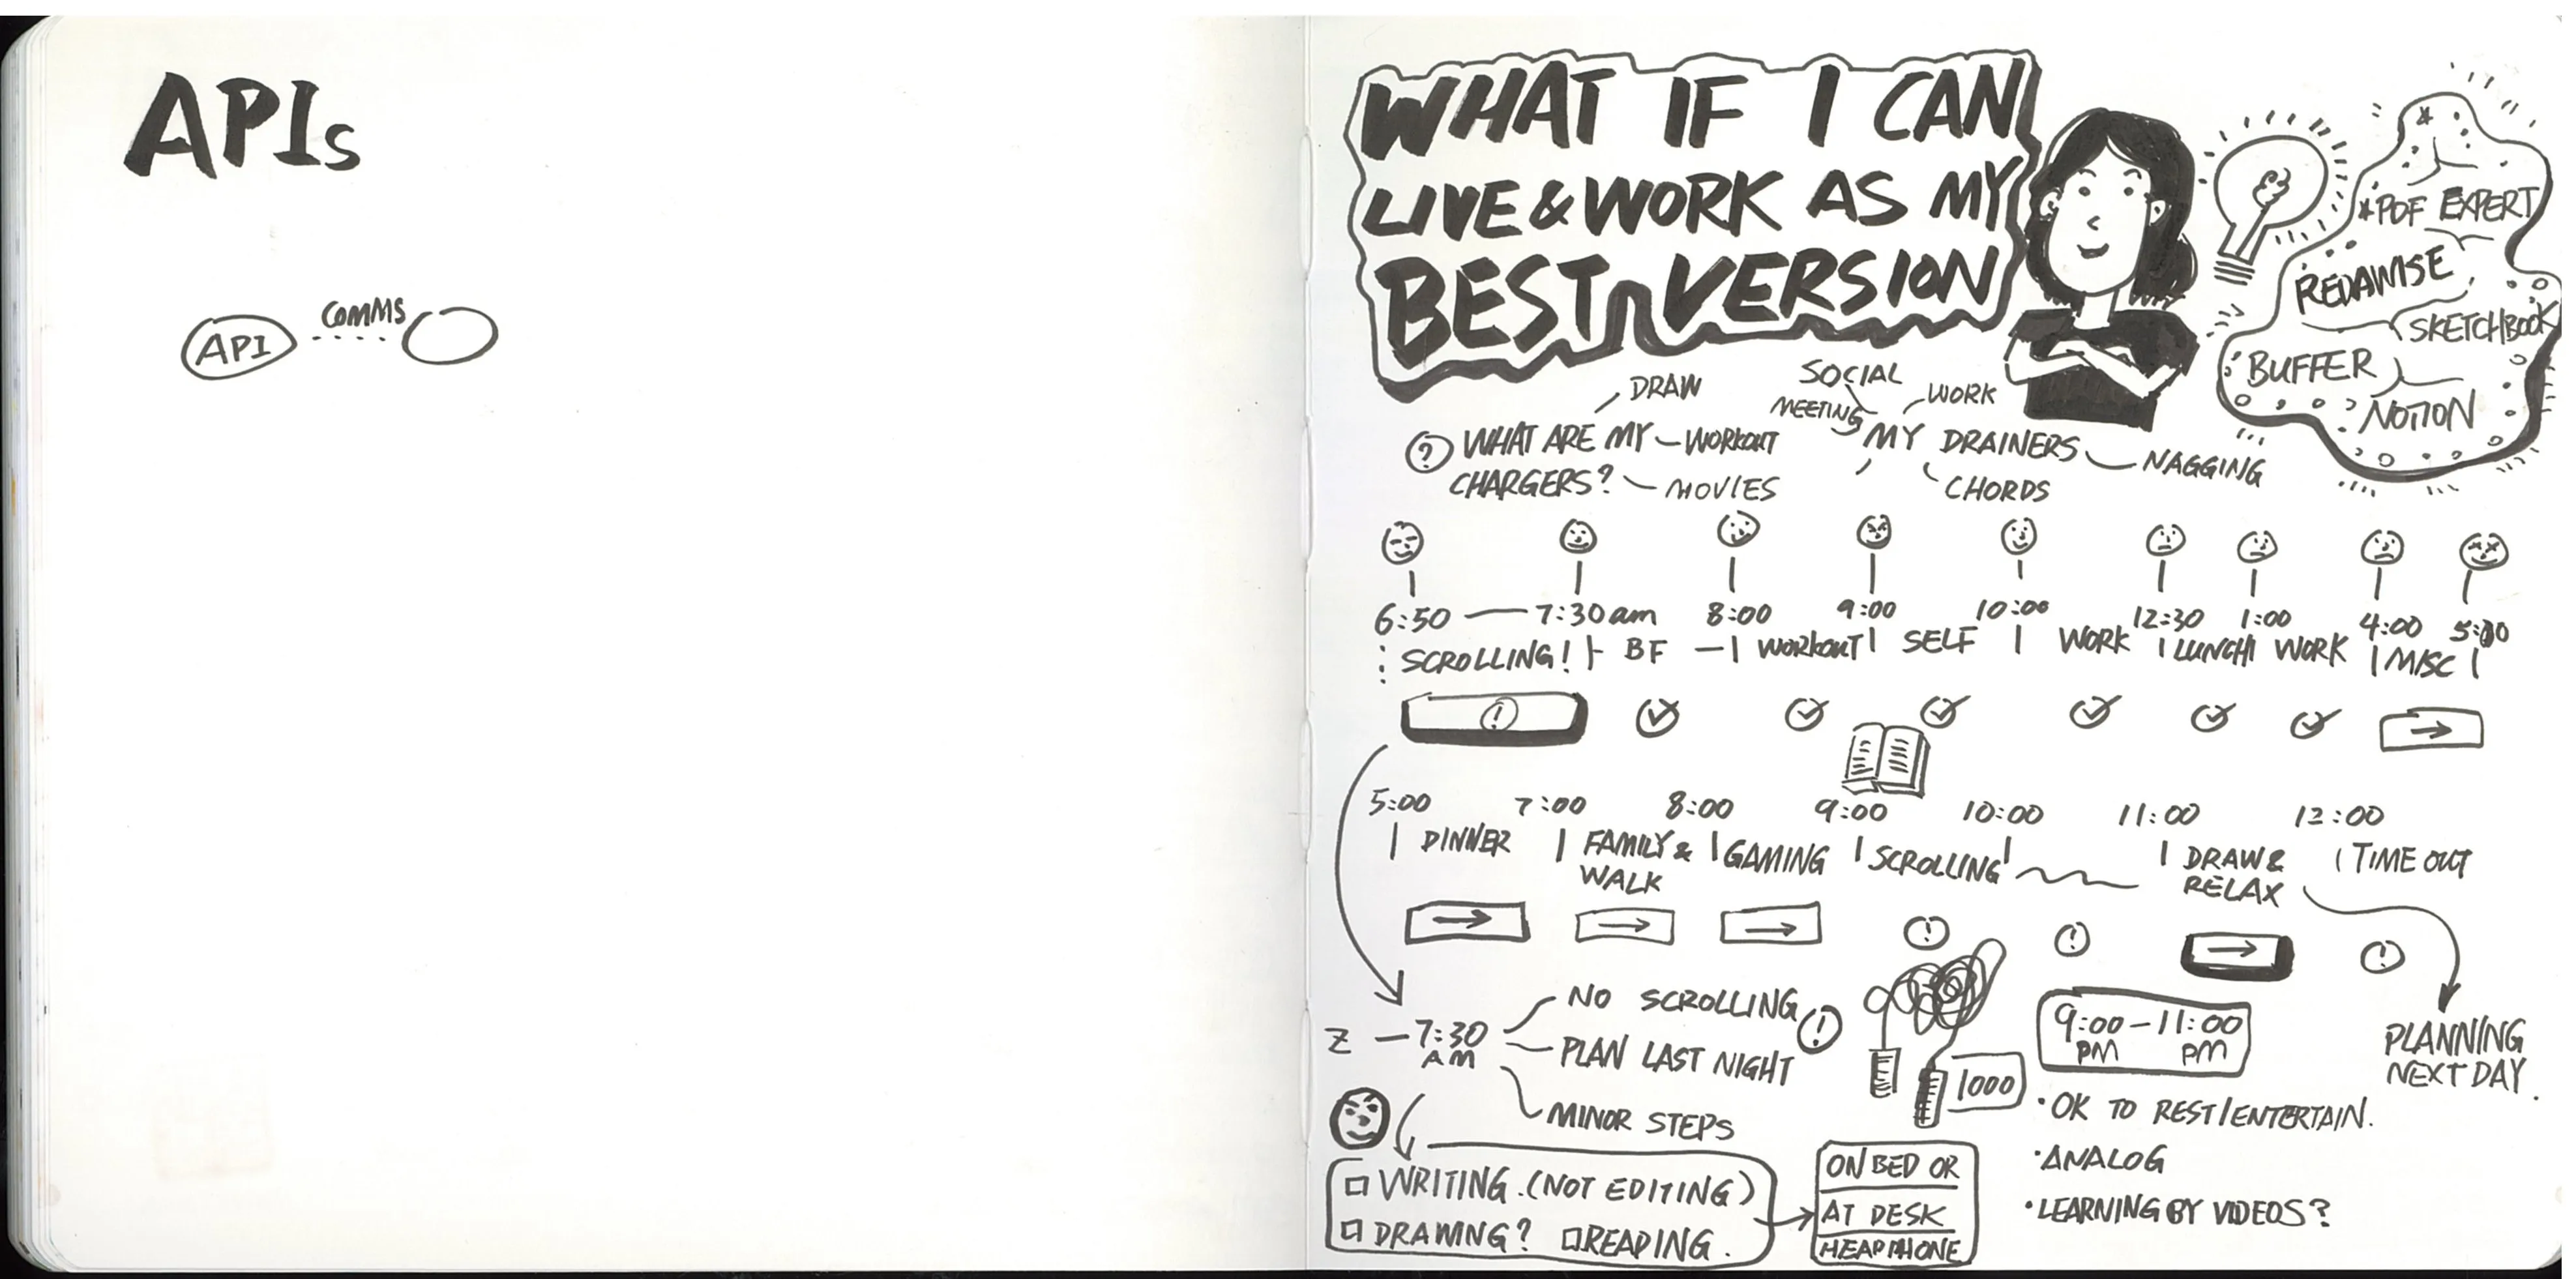 APIs
API
COMMS
WHAT IF I CAN
LIVE & WORK AS MY
BEST VERSION
* PDF EXPERT
REDAWISE
SKETCHBOOK
BUFFER
NOTION
? WHAT ARE MY
CHARGERS?
DRAW
WORKOUT
MOVIES
MY DRAINERS
SOCIAL
MEETING
WORK
NAGGING
CHORDS
6:50 — 7:30 am 8:00 9:00 10:00 12:30 1:00 4:00 5:00
SCROLLING! BF WORKOUT SELF WORK LUNCH WORK MISC
5:00 7:00 8:00 9:00 10:00 11:00 12:00
DINNER FAMILY & GAMING SCROLLING DRAW & TIME OUT
WALK RELAX
Z — 7:30
AM
NO SCROLLING
PLAN LAST NIGHT
MINOR STEPS
1000
9:00 — 11:00
PM PM
PLANNING
NEXT DAY.
• OK TO REST/ENTERTAIN.
• ANALOG
• LEARNING BY VIDEOS?
WRITING. (NOT EDITING)
DRAWING? READING.
ON BED OR
AT DESK
HEADPHONE